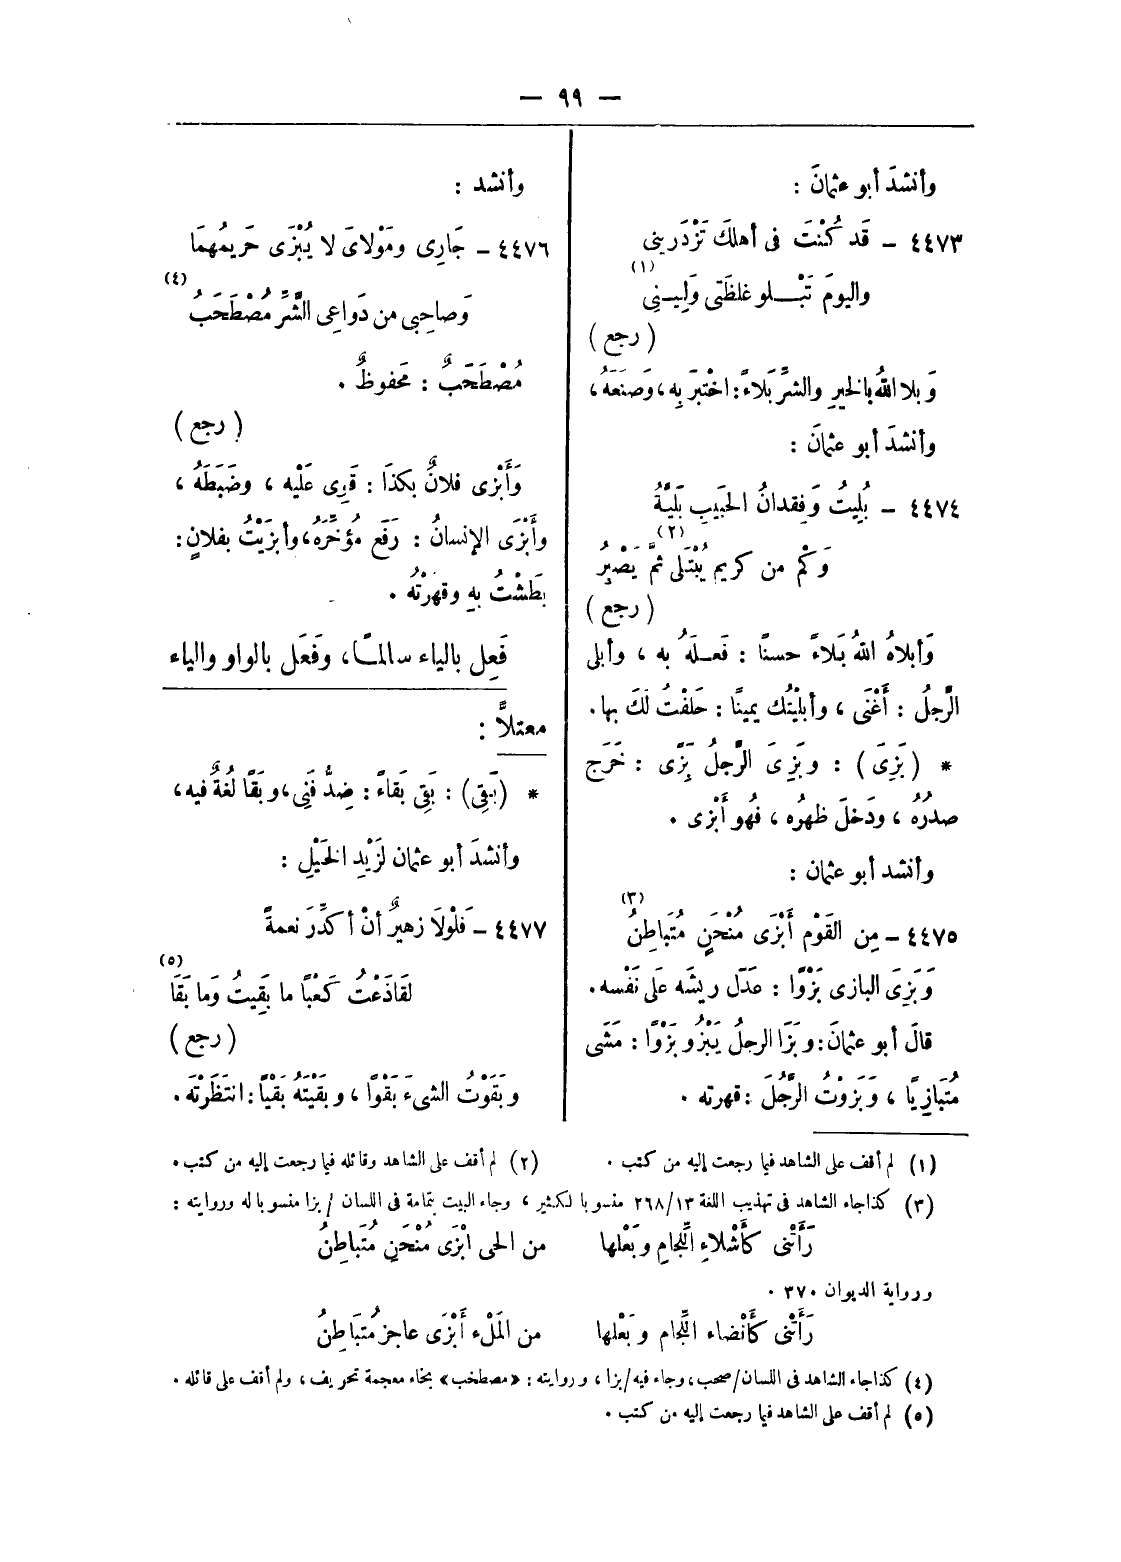 — ٩٩ —
وأنشدَ أبو عثمانَ :
٤٤٧٣ – قَد كُنْتَ فى أهلكَ تَزْدَرينِى
واليومَ تَبْـــلو غلظَتِى وَلِيـنِى (١)
( رجع )
وَبلا اللهُ بالخيرِ والشرِّ بَلاءً : اخْتبَرَ بِه ، وَصَنَعَهُ ،
وأنشدَ أبو عثمانَ :
٤٤٧٤ – بُلِيتُ وَفِقدانُ الحَبيبِ بَلَيَّةُ
وَكَمْ من كريم يُبْتَلى ثمَّ يَصْبِرُ (٢)
( رجع )
وَأبلاهُ اللهُ بَلاءً حسنًا : فَعـلَهُ به ، وأبلى
الرَّجلُ : أغْنَى ، وأبلَيْتُك يمينًا : حَلفْتُ لَكَ بها .
* (بَزِىَ) : وبَزِىَ الرَّجلُ بَزًى : خَرَج
صدْرُهُ ، ودَخلَ ظهرُه ، فهُو أَبْزى .
وأنشد أبو عثمان :
٤٤٧٥ – مِن القَوْم أَبْزَى مُنْحَنٍ مُتَباطِنُ (٣)
وَبَزِىَ البازى بَزْوًا : عَدّل ريشَه عَلَى نَفْسه .
قالَ أبو عثمانَ : وبَزَا الرجلُ يَبْزُو بَزْوًا : مَشَى
مُتَبَازِيًا ، وَبَزوْتُ الرَّجُلَ : قهرته .
وأنشد :
٤٤٧٦ – جَارِى ومَوْلاىَ لا يُبْزَى حَريمُهمَا
وَصاحِبى من دَواعِى الشَّرِّ مُصْطَحَبُ (٤)
مُصْطَحَبٌ : مَحفوظٌ .
( رجع )
وَأَبْزى فلانٌ بكذَا : قَوِى عَلَيْه ، وضَبَطَهُ ،
وأَبْزَى الإنسانُ : رَفَع مُؤخَّرَهُ ، وأبزَيْتُ بفلانٍ :
بَطَشْتُ بِهِ وقهَرْتُهُ .
فَعِل بالياء سالمـًا ، وفَعَل بالواو والياء
معتلاًّ :
* (بَقِىَ) : بَقِى بَقاءً : ضِدُّ فَنِى ، وبقَا لُغةٌ فيه ،
وأنشدَ أبو عثمان لزَيْدِ الخَيْلِ :
٤٤٧٧ – فَلوْلَا زهيرٌ أنْ أكدِّرَ نعمةً
لقَاذَعْتُ كَعْبًا ما بقِيتُ وَما بَقَا (٥)
( رجع )
وبَقَوْتُ الشىءَ بَقْوًا ، وبقَيْتهُ بَقْيًا : انتَظَرْتَه .
(١) لم أقف على الشاهد فيما رجعت إليه من كتب . (٢) لم أقف على الشاهد وقائله فيما رجعت إليه من كتب .
(٣) كذا جاء الشاهد فى تهذيب اللغة ٢٦٨/١٣ منسوبا لكثير ، وجاء البيت بتمامة فى اللسان / بزا منسوبا له وروايته :
رَأَتْنى كَأَشْلاءِ اللِّجامِ وبَعْلها من الحى ابْزَى مُنْحَنٍ مُتَباطِنُ
ورواية الديوان ٣٧٠ .
رَأَتْنى كَأَنْضاء اللِّجام وبَعْلها من المَلْء أَبْزَى عاجز مُتَبَاطِنُ
(٤) كذا جاء الشاهد فى اللسان/صحب ، وجاء فيه/بزا ، وروايته : «مصطخب» بخاء معجمة تحريف ، ولم أقف على قائله .
(٥) لم أقف على الشاهد فيما رجعت إليه من كتب .